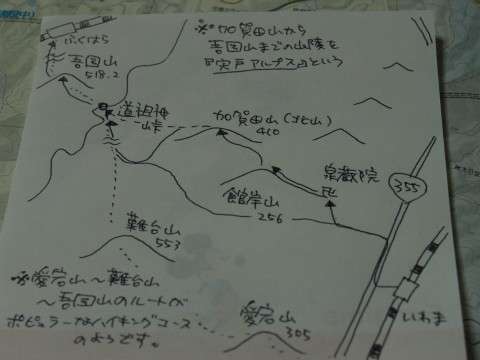 ※加賀田山から
吾国山までの山陵を
『宍戸アルプス』という
ふくはら
吾国山
518.2
道祖神
峠
加賀田山(北山)
410
泉蔵院
卍
355
館岸山
256
難台山
553
※愛宕山〜難台山
〜吾国山のルートが
ポピュラーなハイキングコース
のようです。
愛宕山
305
いわま